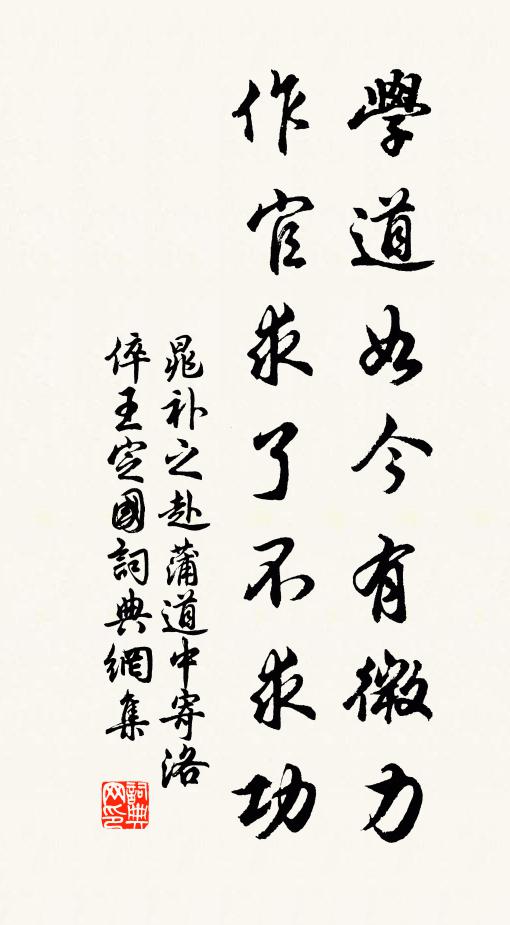 學道如今有微力
作官求了不求功
晁补之赴蒲道中寄洛
倅王定國詞典網集
詞典网印